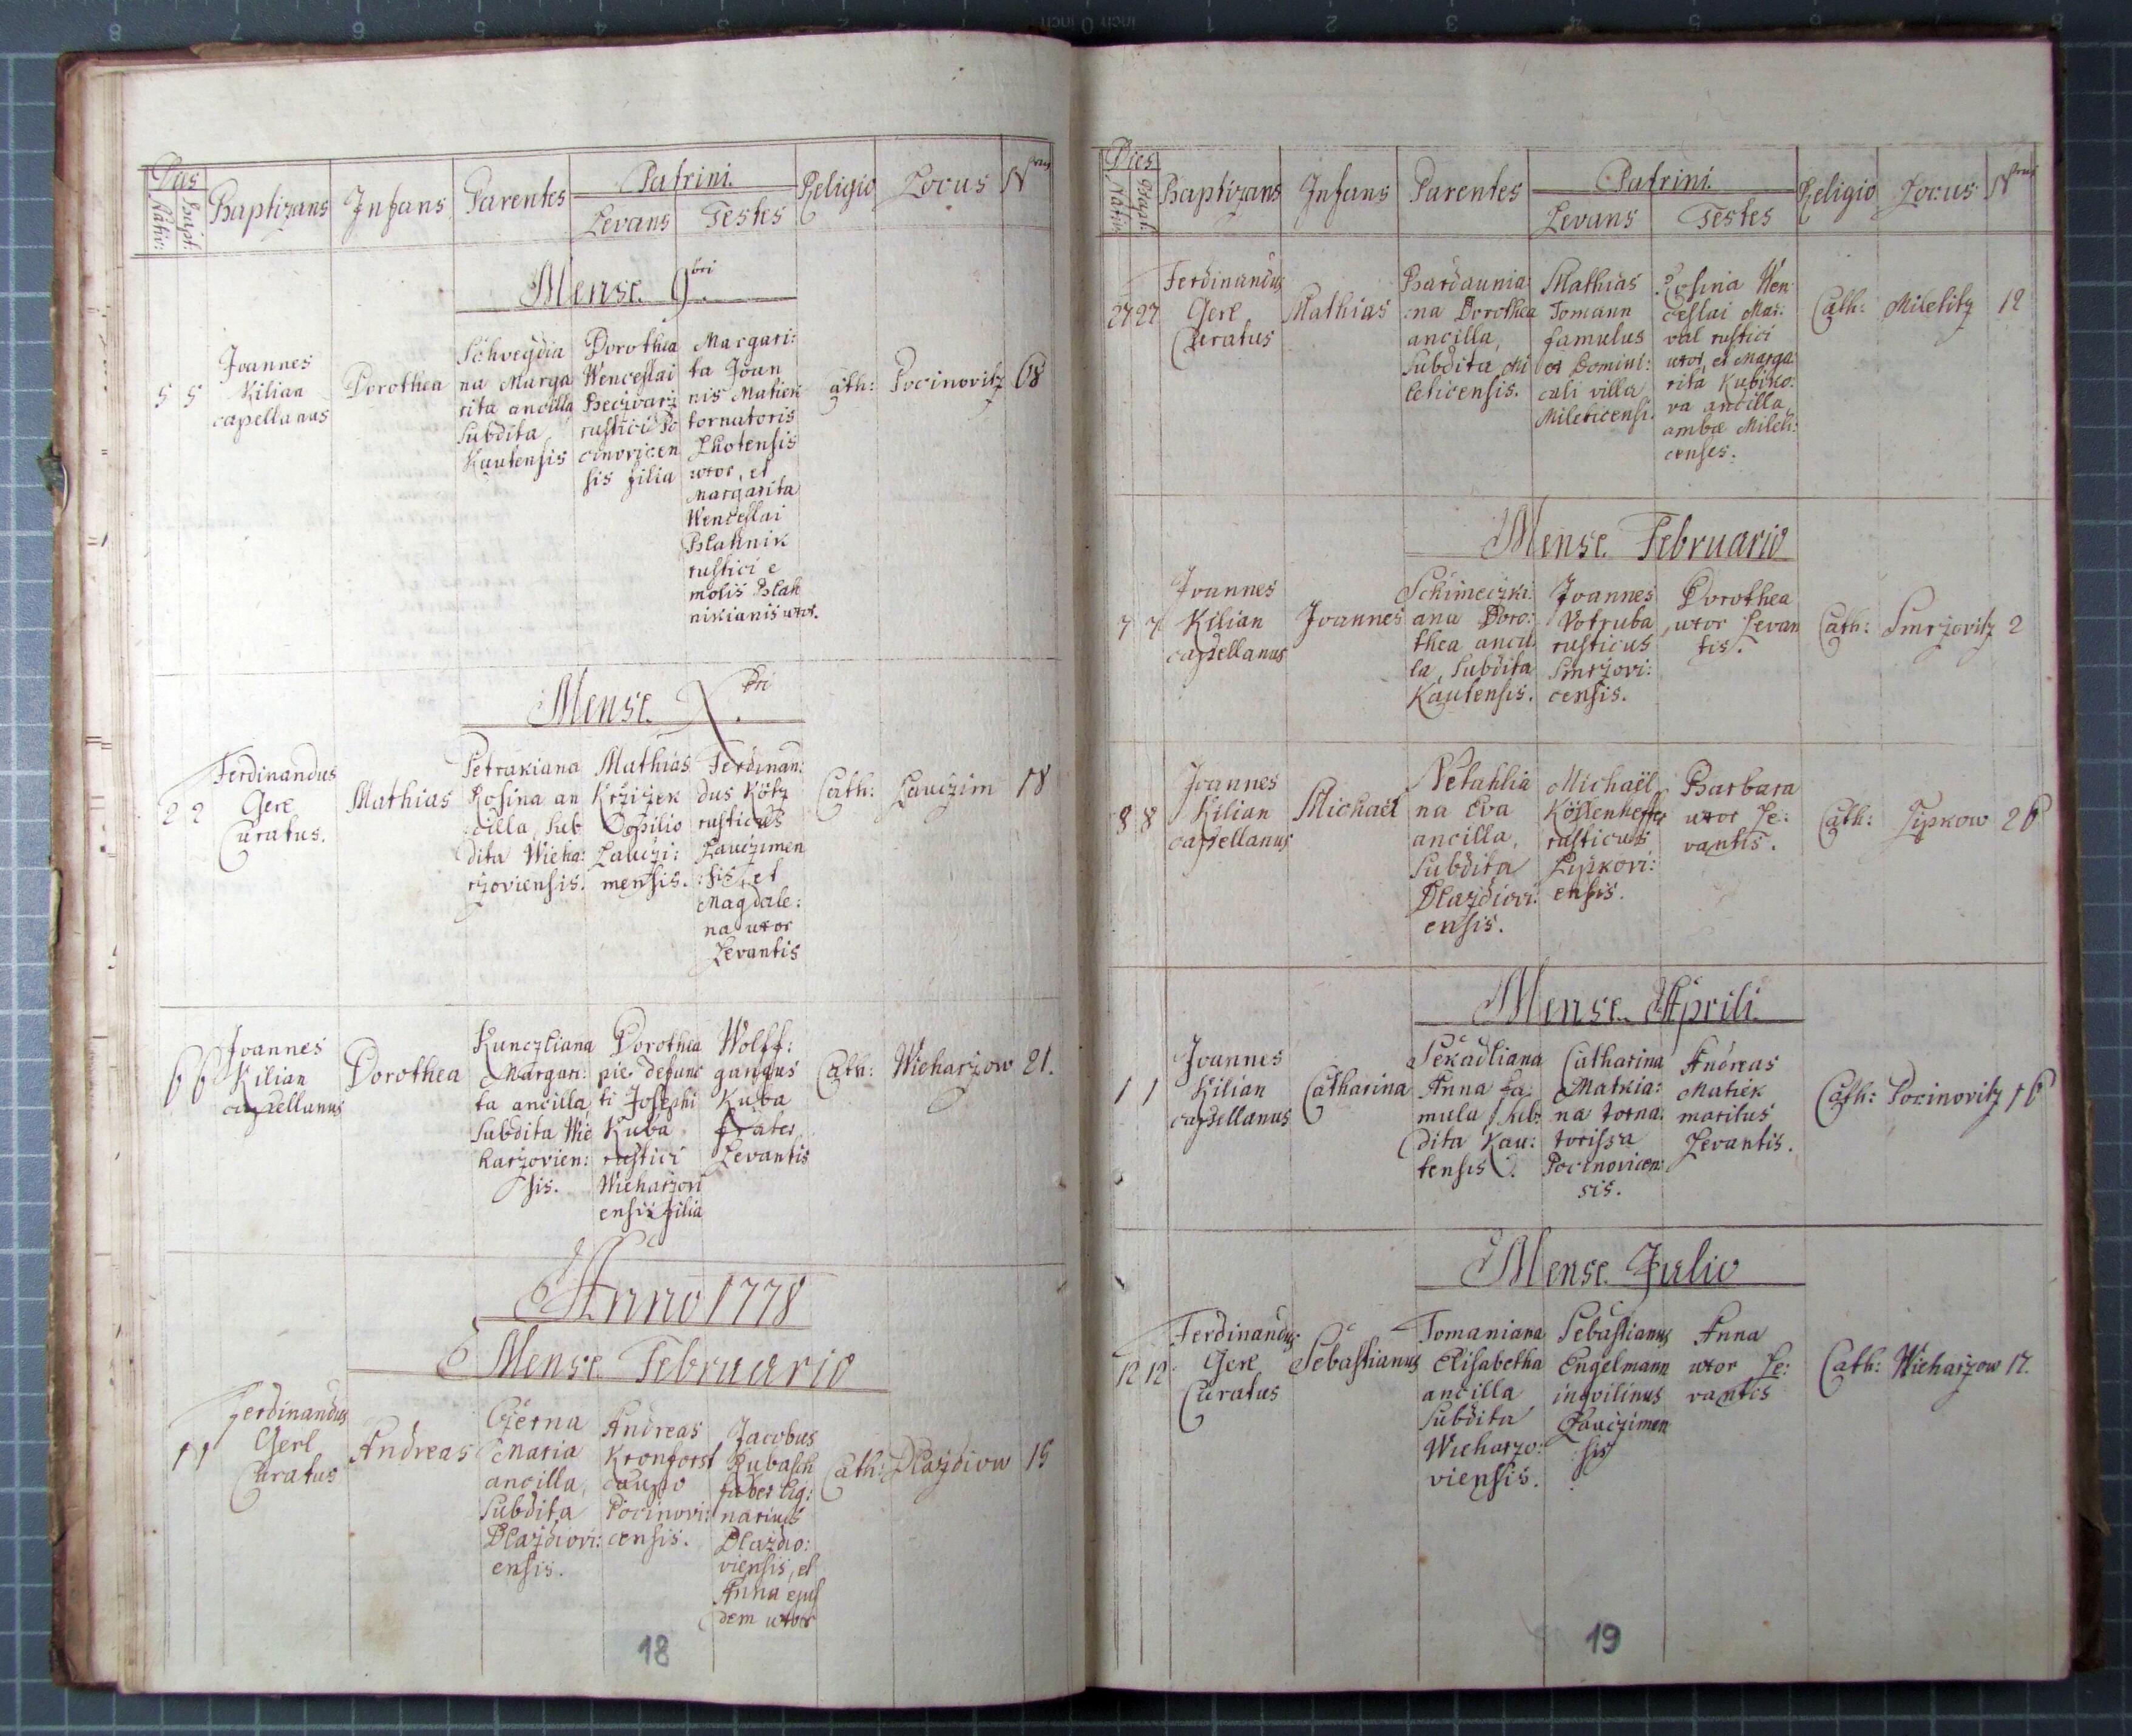 Dies
Nativ:
Bapt:
Baptizans
Infans
Parentes
Patrini.
Levans
Testes
Religio
Locus
Nrus
Mense 9bri
5 5
Joannes
Kilian
capellanus
Dorothea
Schvegdia
na Marga
rita ancilla
Subdita
Kautensis
Dorothea
Wenceslai
Beczvarz
rustici Po
cinovicen
sis filia
Margari:
ta Joan
nis Matiek
tornatoris
Lhotensis
uxor, et
Margarita
Wenceslai
Blahnik
rustici e
molis Blah
nikianis uxor.
Cath:
Pocinovitz
68
Mense Xbri
2 2
Ferdinandus
Gerl
Curatus.
Mathias
Petrakiana
Rosina an
cilla, Sub
dita Wicha:
rzoviensis.
Mathias
Krzizek
Opilio
Lauczi:
mensis.
Ferdinan:
dus Kötz
rusticus
Lauczimen
:sis, et
Magdale:
na uxor
Levantis
Cath:
Lauczim
18
6 6
Joannes
Kilian
capellanus
Dorothea
Kuncztiana
Margari:
ta ancilla,
Subdita Wie
harzovien:
sis.
Dorothea
pie defunc
ti Josephi
Kuba
rustici
Wieharzovi
ensis filia
Wolff:
gangus
Kuba
frater
Levantis
Cath:
Wieharzow
21.
Anno 1778
Mense Februario
1 1
Ferdinandus
Gerl
Curatus
Andreas
Czerna
Maria
ancilla,
Subdita
Dlazdiovi:
ensis.
Andreas
Kronforst
caupo
Pocinovi:
censis.
Jacobus
Kubasch
faber lig:
narius
Dlazdio:
viensis, et
Anna ejus
dem uxor
Cath:
Dlazdiow
15
18
Dies
Nativ:
Bapt:
Baptizans
Infans
Parentes
Patrini.
Levans
Testes
Religio
Locus
Nrus
27 27
Ferdinandus
Gerl
Curatus
Mathias
Bardaunia
:na Dorothea
ancilla,
Subdita Mi
leticensis.
Mathias
Tomann
famulus
ex Domini:
cali villa
Mileticensi.
Rosina Wen
ceslai Mar:
val rustici
uxor, et Marga:
rita Kubiko:
va ancilla,
ambæ Mileti:
censes.
Cath:
Miletitz
12
Mense Februario
7 7
Joannes
Kilian
capellanus
Joannes
Schimeczki:
ana Doro:
thea ancil
la, Subdita
Kautensis.
Joannes
Votruba
rusticus
Smrzovi:
censis.
Dorothea
uxor Levan
tis.
Cath:
Smrzovitz
2
8 8
Joannes
Kilian
capellanus
Michaël
Netahlia
na Eva
ancilla,
Subdita
Dlazdiovi:
ensis.
Michaël
Köstenheffer
rusticus
Lipkovi:
ensis.
Barbara
uxor Le:
vantis.
Cath:
Lipkow
26
Mense Aprili.
1 1
Joannes
Kilian
capellanus
Catharina
Sekadliana
Anna fa:
mula, sub:
dita Kau:
tensis.
Catharina
Matkia:
na torna:
torissa
Pocinovicen:
sis.
Andreas
Matiek
maritus
Levantis.
Cath:
Pocinovitz
16
Mense Julio
12 12
Ferdinandus
Gerl
Curatus
Sebastianus
Tomaniana
Elisabetha
ancilla
Subdita
Wieharzo:
viensis.
Sebastianus
Engelmann
inqvilinus
Lauczimen
:sis
Anna
uxor Le:
vantis
Cath:
Wieharzow
17.
19